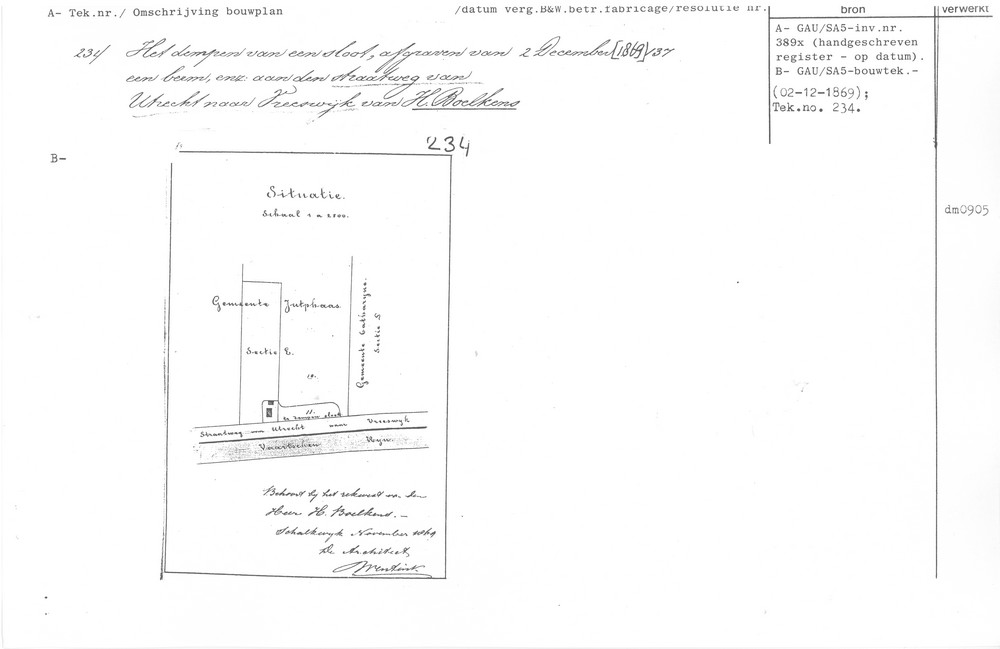 A- Tek.nr./ Omschrijving bouwplan /datum verg.B&W.betr.fabricage/resolutie nr. bron verwerkt
234 Het dempen van een sloot, afgraven van 2 December [1869]/37
een berm, enz: aan den straatweg van
Utrecht naar Vreeswijk van H. Boelkens
A- GAU/SA5-inv.nr.
389x (handgeschreven
register - op datum).
B- GAU/SA5-bouwtek.-
(02-12-1869);
Tek.no. 234.
dm0905
B-
234
Situatie.
Schaal 1 a 2500.
Gemeente Jutphaas
Sectie E.
Gemeente Catharyne.
Sectie
19.
11.
te dempen sloot
Straatweg van Utrecht naar Vreeswyk
Vaartschen Rhyn.
Behoort bij het rekwest van den
Heer H. Boelkens. -
Schalkwyk November 1869
De Architect